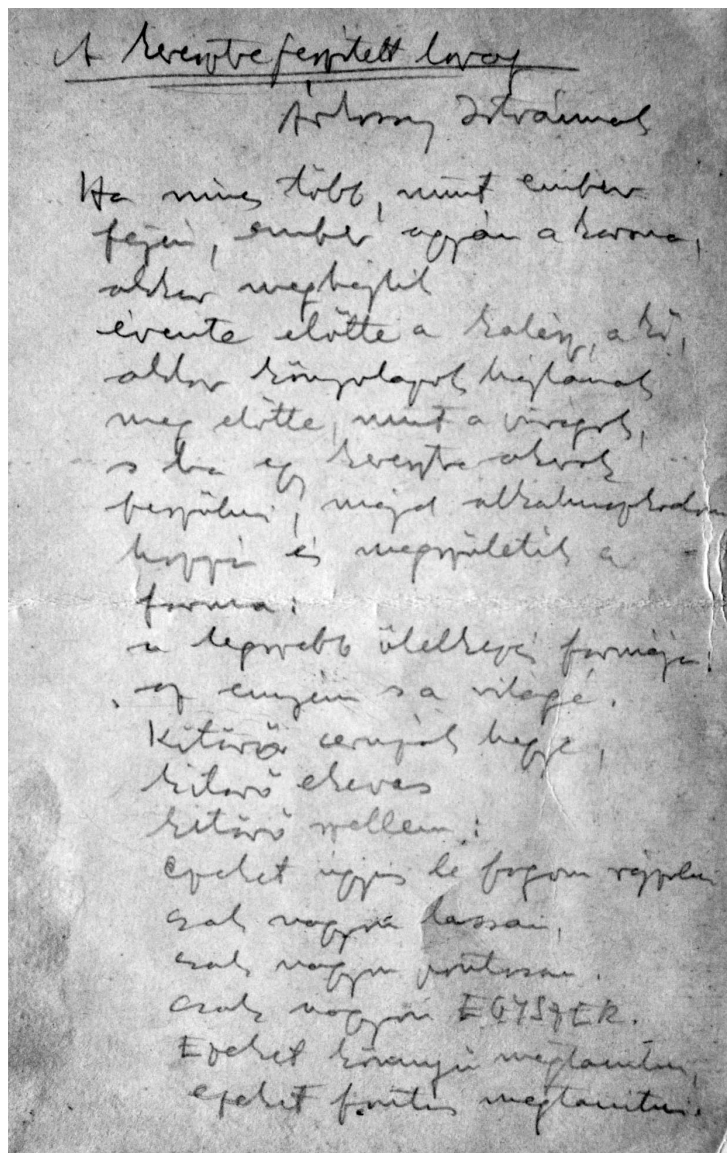 A keresztrefeszített lovag
Árkossy Istvánnak
Ha nincs több, mint ember
fején, ember agyán a korona,
akkor meghajlik
évente előtte a kalász, a kő,
akkor könyvlapok hajlanak
meg előtte, mint a virágok,
s ha egy keresztre akarok
feszülni, majd alkalmazkodom
hozzá és megszületik a
forma:
a legszebb ölelkezés formája:
az enyém s a világé.
Kitárò ceruzák hegye,
kitárò ekevas
kitárò szellem:
Ezeket úgyis le fogom rajzolni
csak nagyon lassan,
csak nagyon pontosan.
csak nagyon EGYSZER.
Ezeket könnyű megtanítni,
ezeket fontos megtanítni.